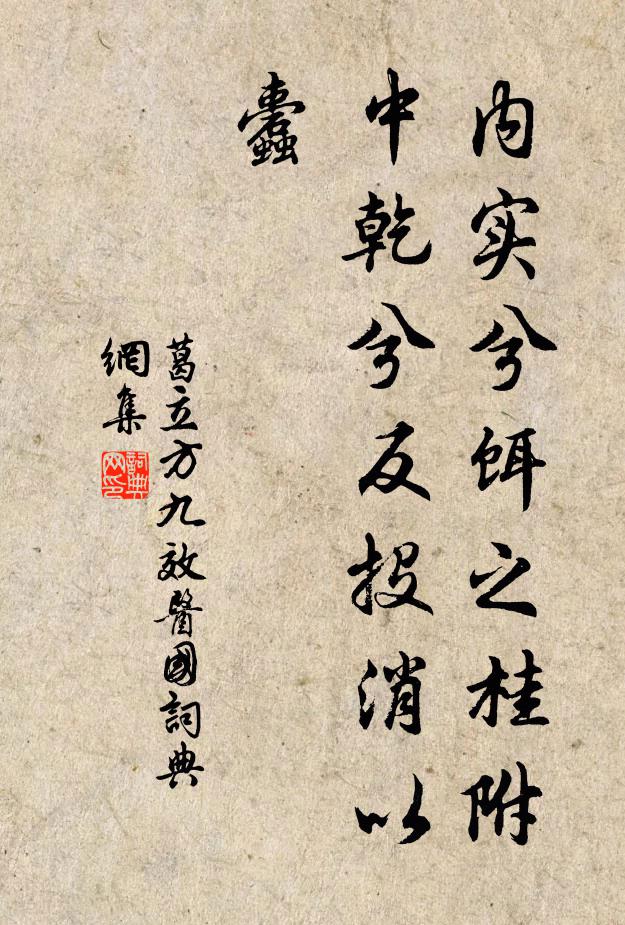 内实兮饵之桂附
中乾兮反投消以
蠹
葛立方九效醫國詞典
網集
詞典
网印